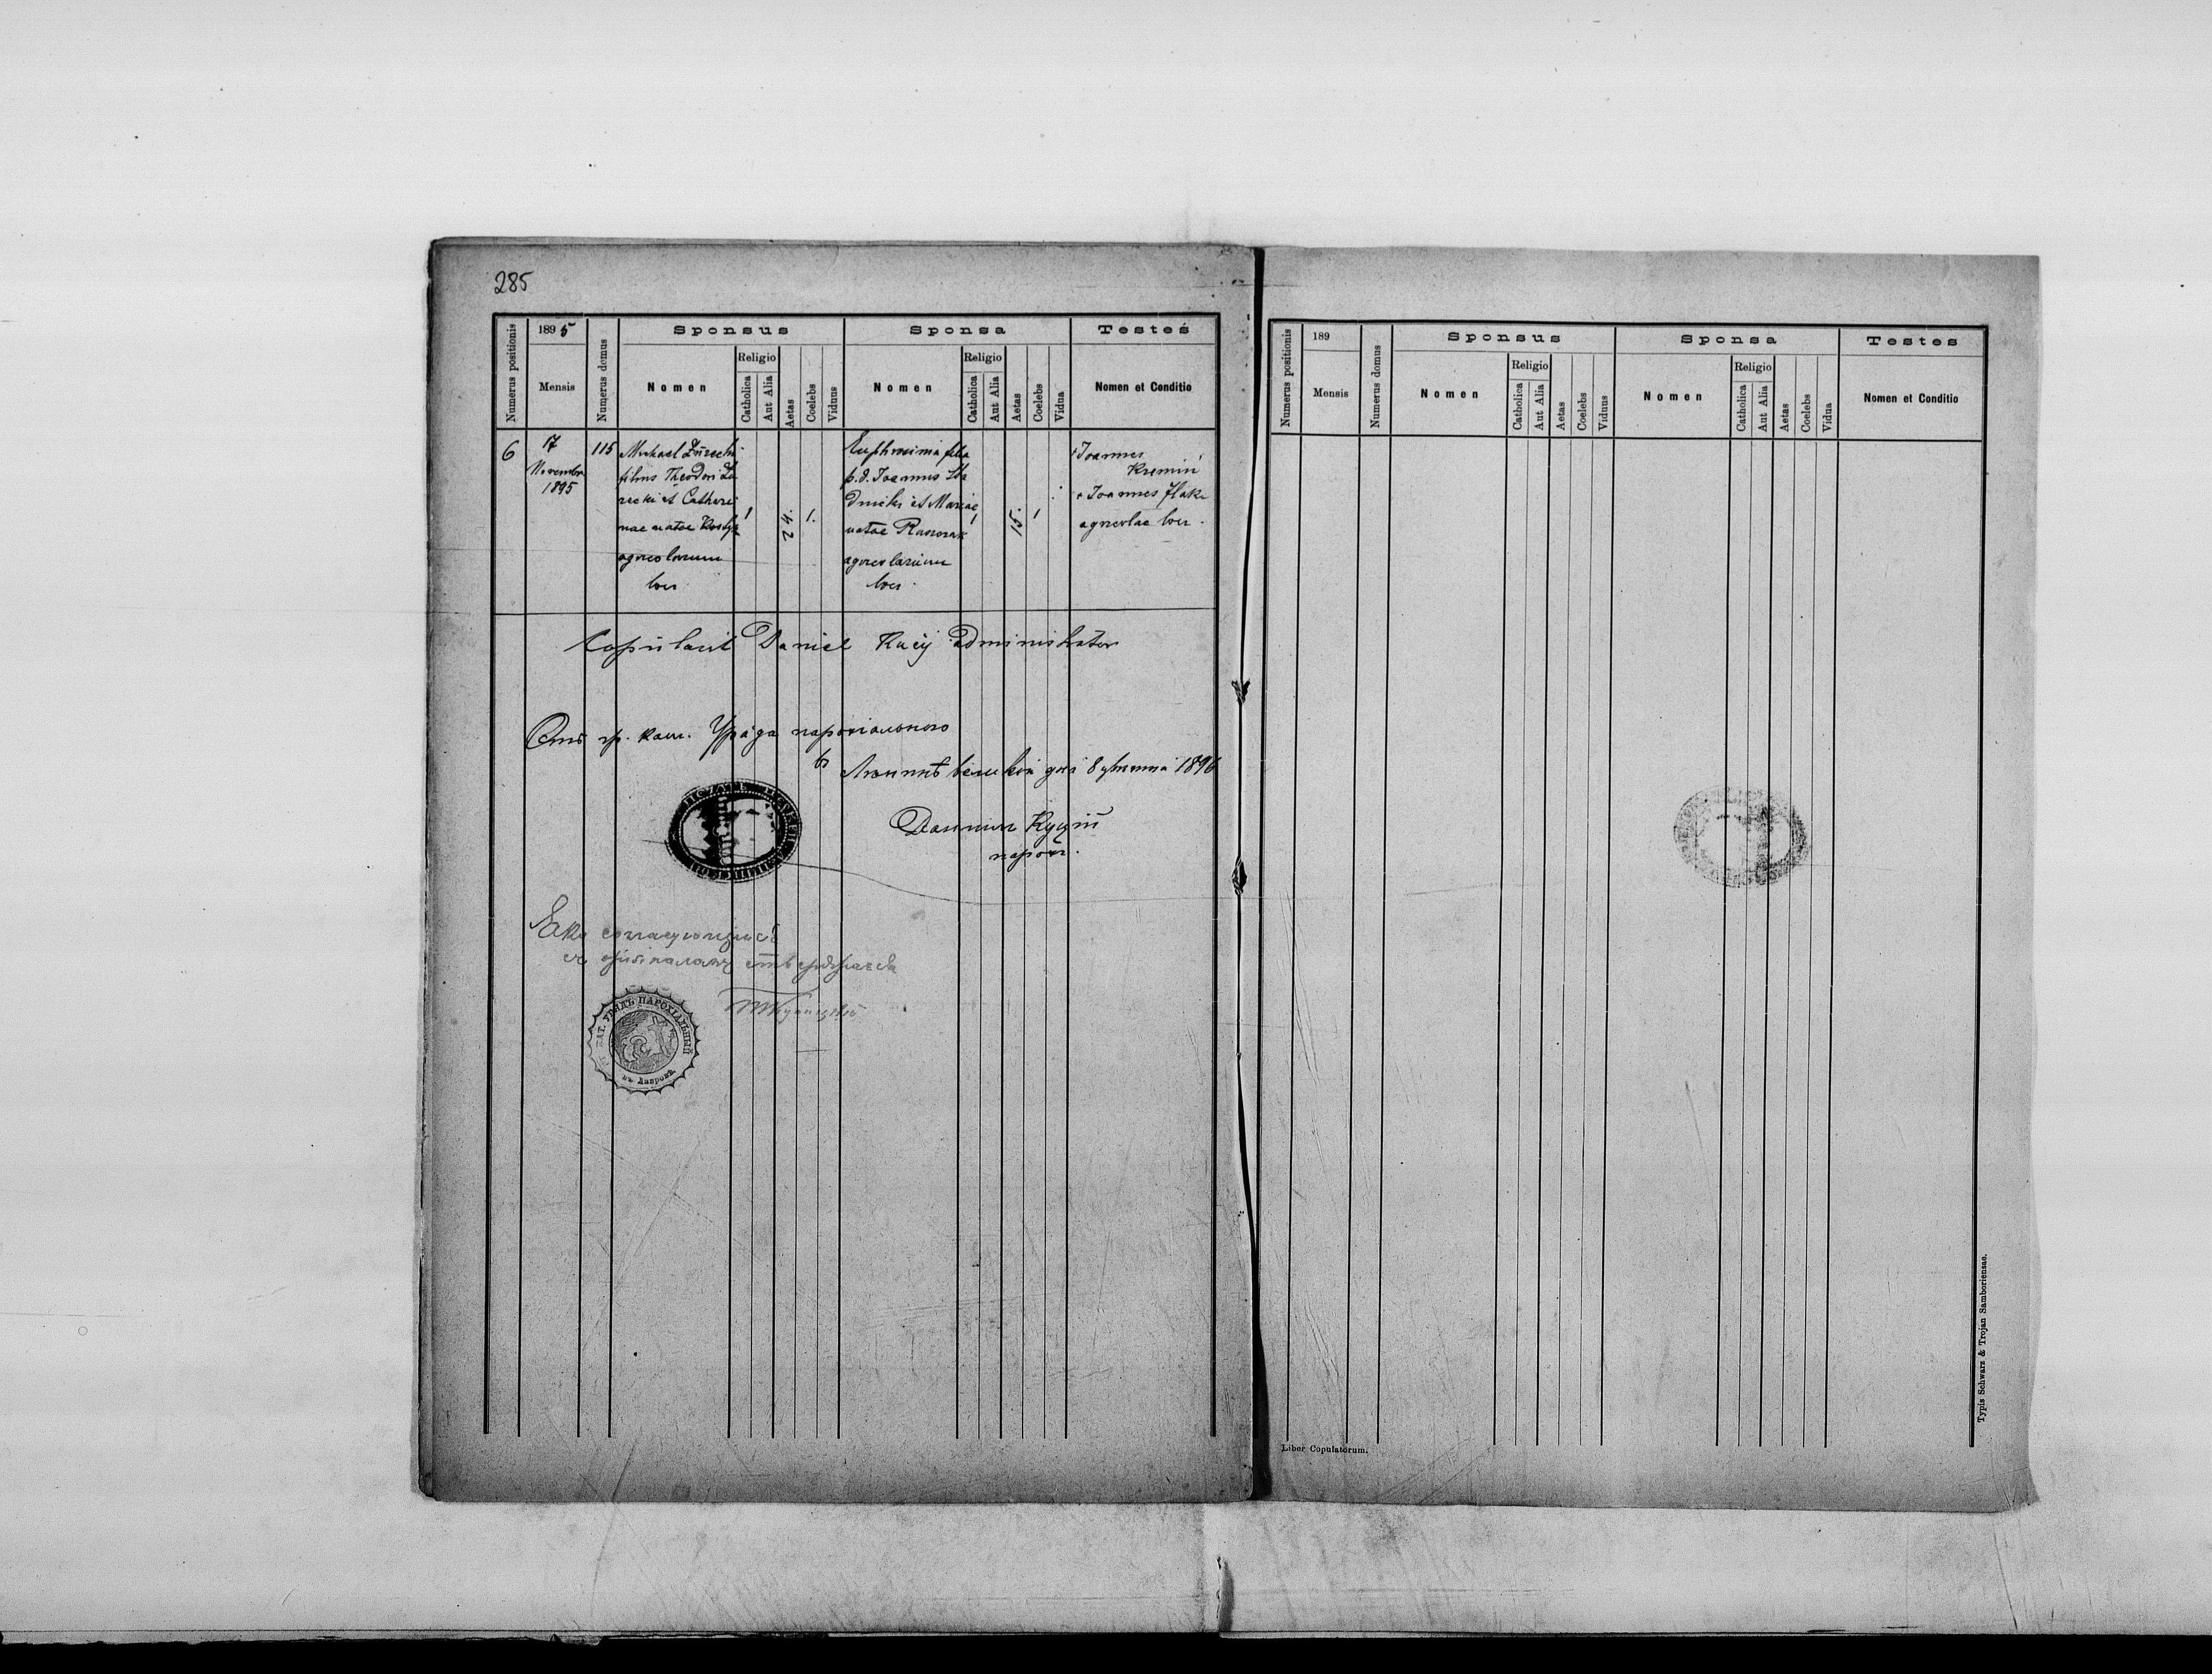 285
Numerus positionis
1895
Mensis
Numerus domus
Sponsus
Nomen
Religio
Catholica
Aut Alia
Aetas
Coelebs
Viduus
Sponsa
Nomen
Religio
Catholica
Aut Alia
Aetas
Coelebs
Vidua
Testes
Nomen et Conditio
6
17
Novembr
1895
115
Michael
filius Theodori
recki et Cathari
nae natae
agricolarum
loci
1
24.
1.
Euphrosinia filia
p.d. Joannis
dnicki et Mariae
natae
agricolarum
loci
1
1
Joannes
Kremin
Joannes Hak
agricolae loci.
Copulavit Daniel Kucij administrator
Отъ гр. кат. Уряда парохіального
въ
великой дня 8 1896
Даниил Куцій
парох.
Яко согласующійся
съ оригіналомъ стверджаєся
УРЯДЪ ПАРОХІАЛЬНЫЙ
въ Лаврові
Numerus positionis
189
Mensis
Numerus domus
Sponsus
Nomen
Religio
Catholica
Aut Alia
Aetas
Coelebs
Viduus
Sponsa
Nomen
Religio
Catholica
Aut Alia
Aetas
Coelebs
Vidua
Testes
Nomen et Conditio
Liber Copulatorum.
Typis Schwarz & Trojan Samboriensae.